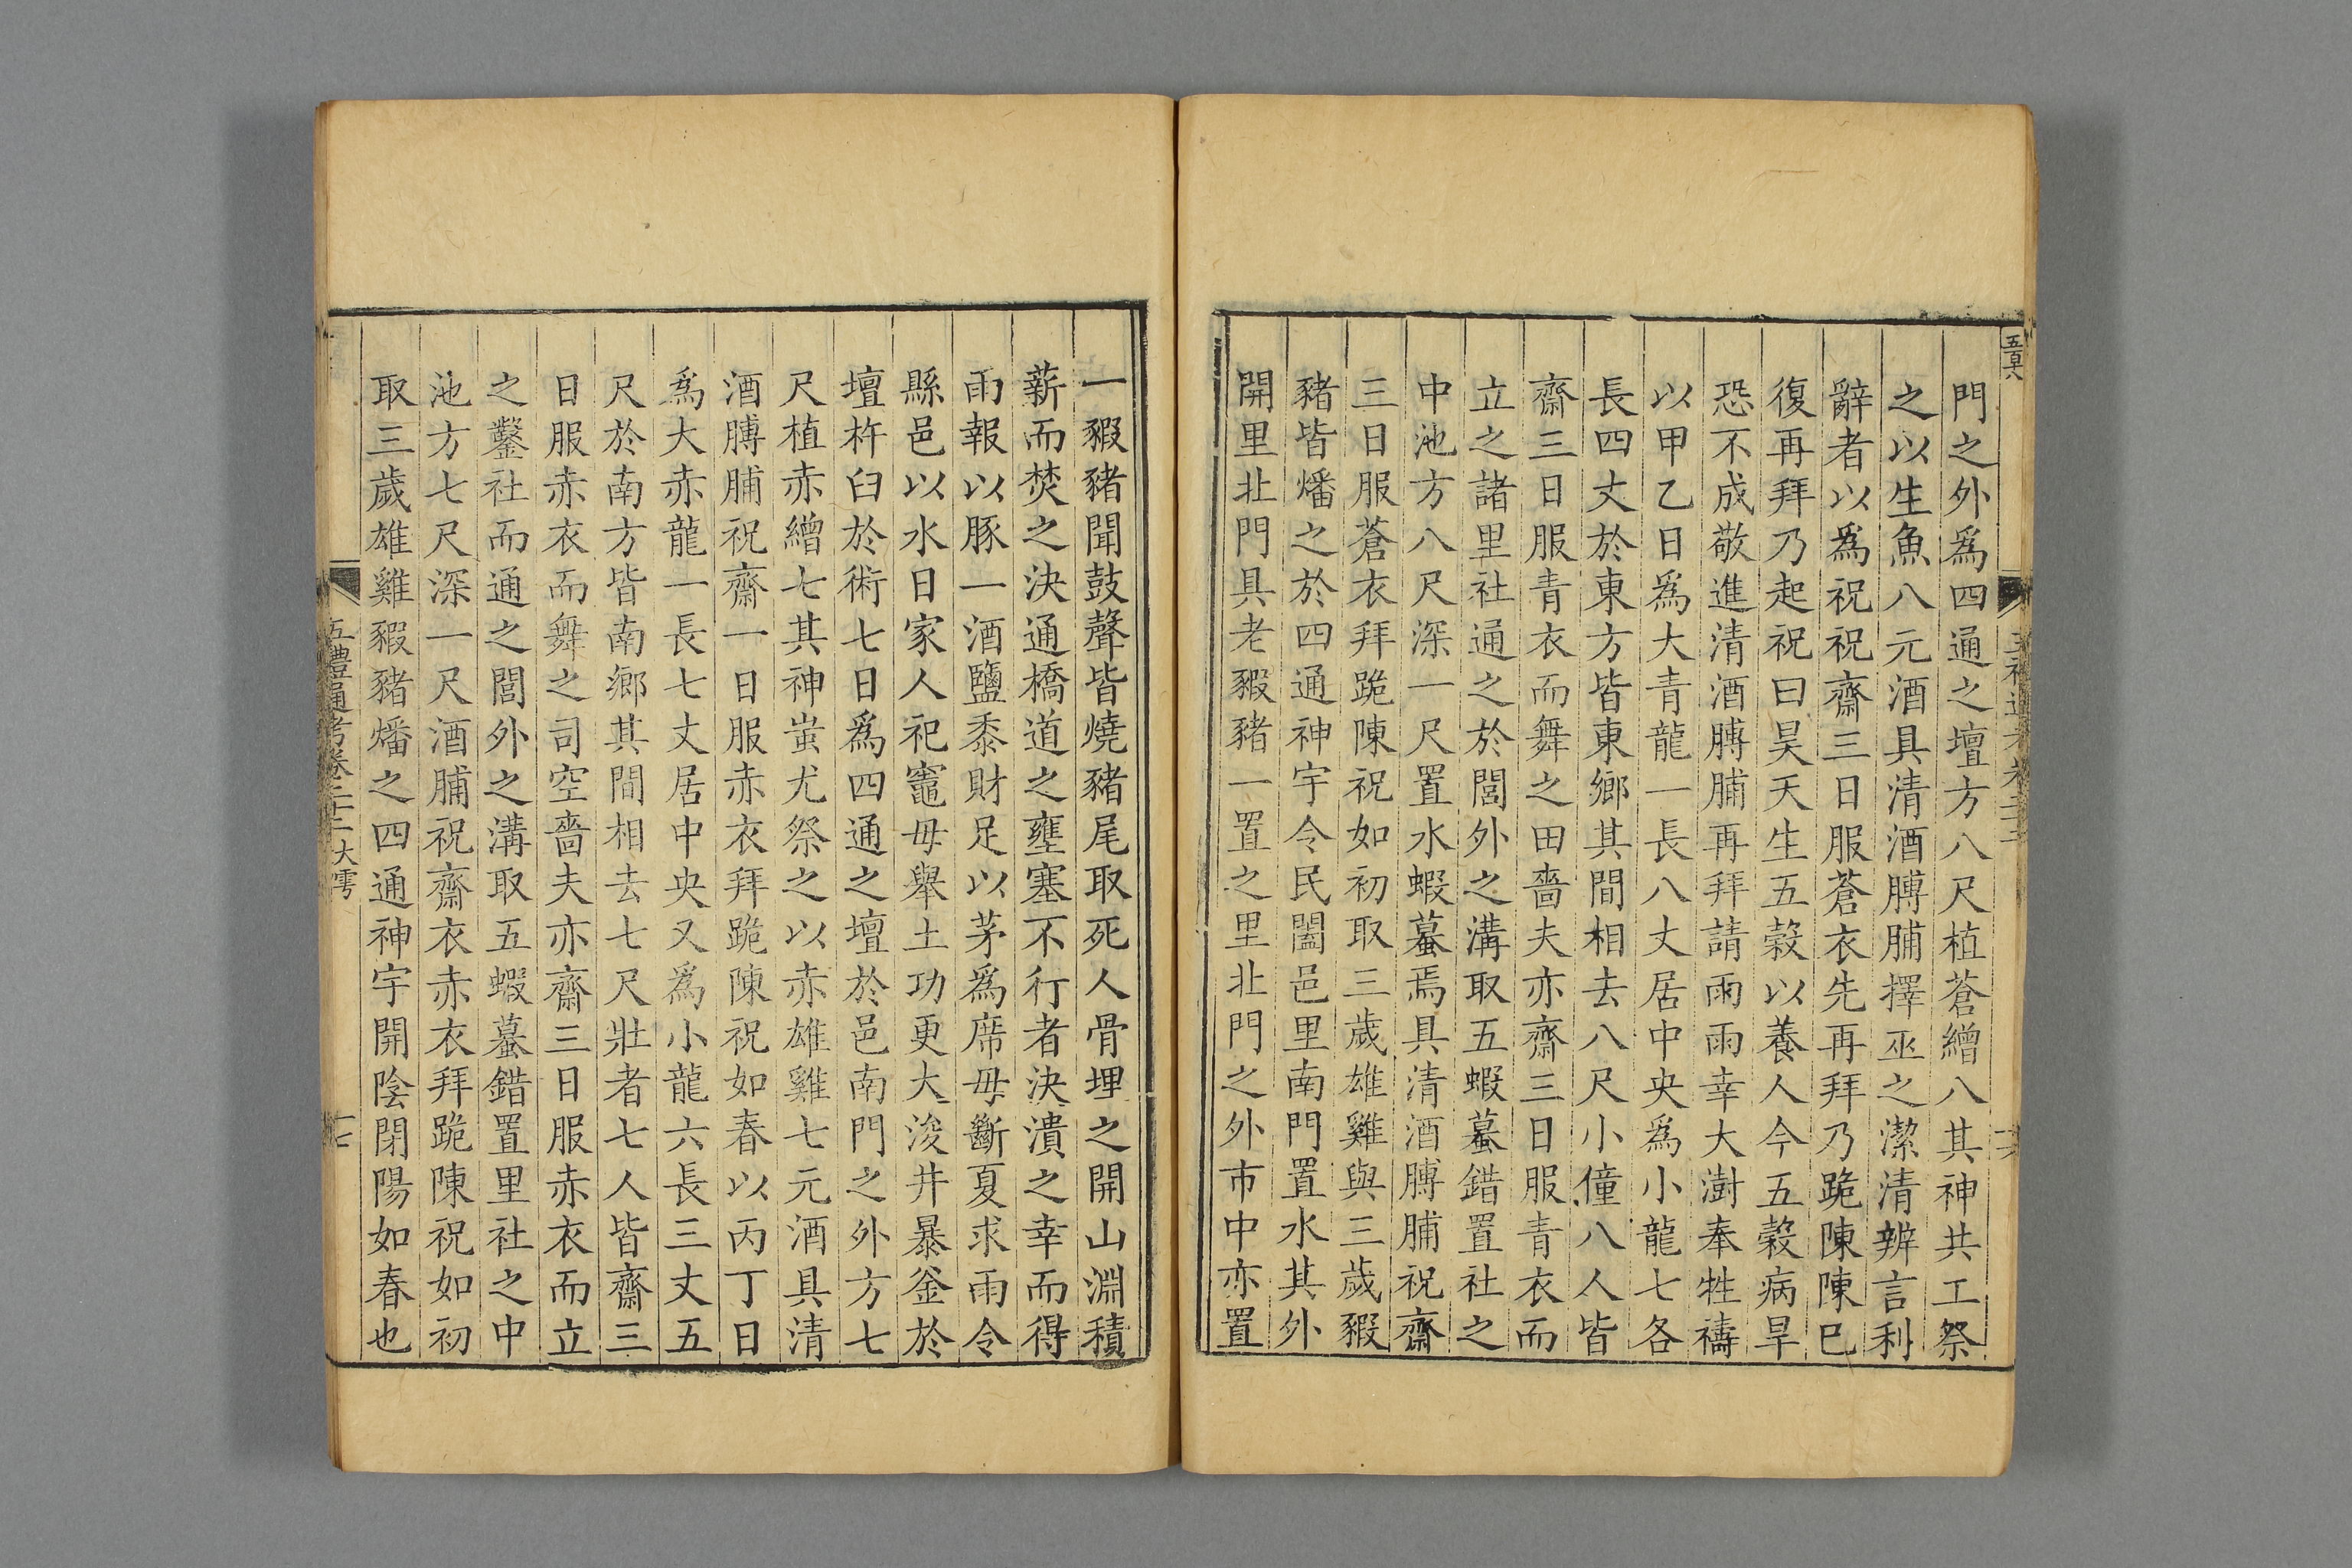 門之外爲四通之壇方八尺植蒼繒八其神共工祭
之以生魚八元酒具清酒膊脯擇巫之潔清辨言利
辭者以爲祝祝齋三日服蒼衣先再拜乃跪陳陳巳
復再拜乃起祝曰昊天生五穀以養人今五穀病旱
恐不成敬進清酒膊脯再拜請雨雨幸大澍奉牲禱
以甲乙日爲大青龍一長八丈居中央爲小龍七各
長四丈於東方皆東鄉其間相去八尺小僮八人皆
齋三日服青衣而舞之田嗇夫亦齋三日服青衣而
立之諸里社通之於閭外之溝取五蝦蟇錯置社之
中池方八尺深一尺置水蝦蟇焉具清酒膊脯祝齋
三日服蒼衣拜跪陳祝如初取三歲雄雞與三歲豭
豬皆燔之於四通神宇令民闔邑里南門置水其外
開里北門具老豭豬一置之里北門之外市中亦置
一豭豬聞鼓聲皆燒豬尾取死人骨埋之開山淵積
薪而焚之決通橋道之壅塞不行者決瀆之幸而得
雨報以豚一酒鹽黍財足以茅爲席毋斷夏求雨令
縣邑以水日家人祀竈毋舉土功更大浚井暴釜於
壇杵臼於術七日爲四通之壇於邑南門之外方七
尺植赤繒七其神蚩尤祭之以赤雄雞七元酒具清
酒膊脯祝齋一日服赤衣拜跪陳祝如春以丙丁日
爲大赤龍一長七丈居中央又爲小龍六長三丈五
尺於南方皆南鄉其間相去七尺壯者七人皆齋三
日服赤衣而舞之司空嗇夫亦齋三日服赤衣而立
之鑿社而通之閭外之溝取五蝦蟇錯置里社之中
池方七尺深一尺酒脯祝齋衣赤衣拜跪陳祝如初
取三歲雄雞豭豬燔之四通神宇開陰閉陽如春也
五禮通考卷二十二大雩
十七